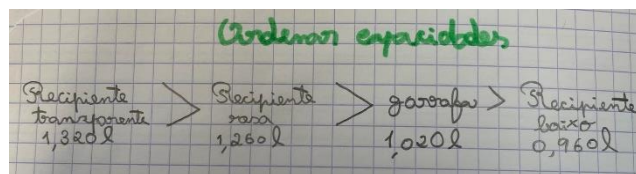 Ordenar capacidades
Recipiente transparente 1,320l > Recipiente rosa 1,260l > garrafa 1,020l > Recipiente baixo 0,960l